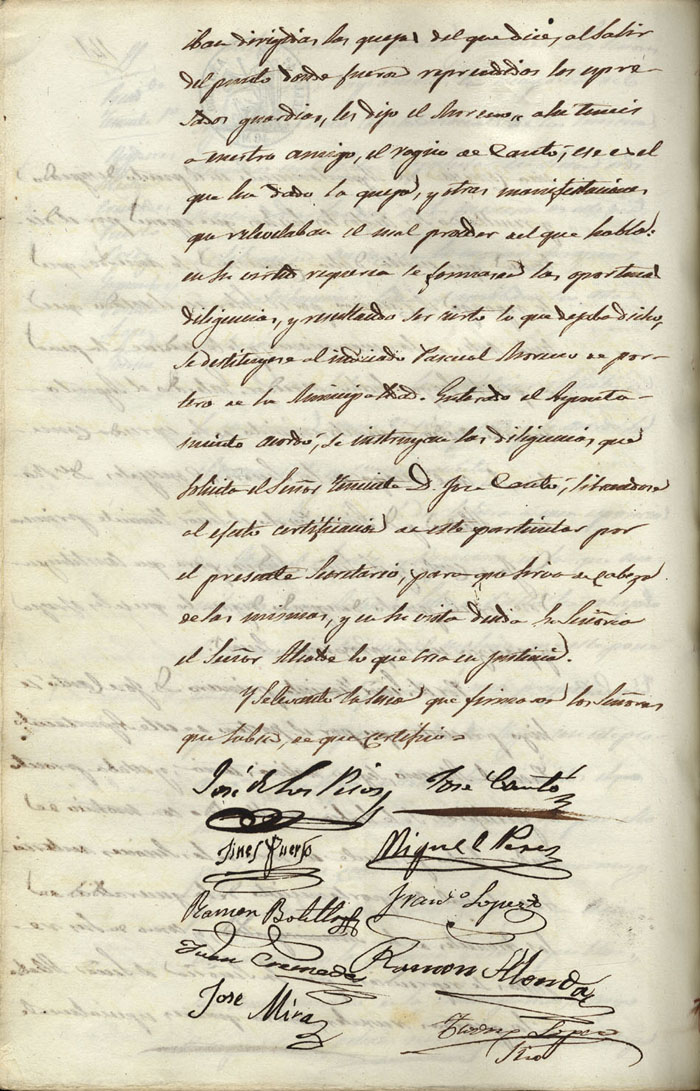 iban dirigidas las quejas del que dice, al salir
del punto donde fueron reprendidos los espre-
sados guardias, les dijo el Moreno, ahi teneis
a vuestro amigo, el vogino de Cantó, ese es el
que ha dado la queja, y otras manifestaciones
que revelaban el mal proceder del que habla:
en su virtud requeria se formasen las oportunas
diligencias, y resultando ser cierto lo que dejaba dicho,
se destituyese al indiciado Pascual Moreno de por-
tero de la Municipalidad. Enterado el Ayunta-
miento acordó, se instruyan las diligencias, que
solicita el Señor Teniente D. José Cantó, librandose
al efecto certificacion de este particular por
el presente Secretario, para que sirva de cabeza
de las mismas, y en su vista decida Su Señoria
el Señor Alcalde lo que crea en justicia.
Y se levantó la sesion que firmaron los Señores
que saben, de que certifico=
José de los Rios José Cantó
Jines Puerto Miguel Perez
Ramon Botella Franco Lopez
Juan Cremades Ramon Alonda
José Mira
Lopez
Srio